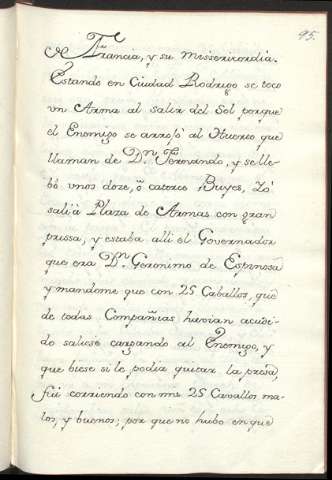 95.
Francia, y su Messericordia.
Estando en Ciudad Rodrigo se toco
vn Arma al salir del Sol porque
el Enemigo se arrojó al Huerto que
llaman de Dn. Fernando, y se lle-
bó vnos doze, ó catorce Buyes, Yo
salí à Plaza de Armas con gran
prissa, y estaba alli el Governador
que era Dn. Geronimo de
y mandome que con 25 Caballos, que
de todas Compañias havian acudi-
do saliese cargando al Enemigo, y
que biese si le podia quitar la presa,
fuì corriendo con mis 25 Cavallos ma-
los, y buenos; por que no hubo en que